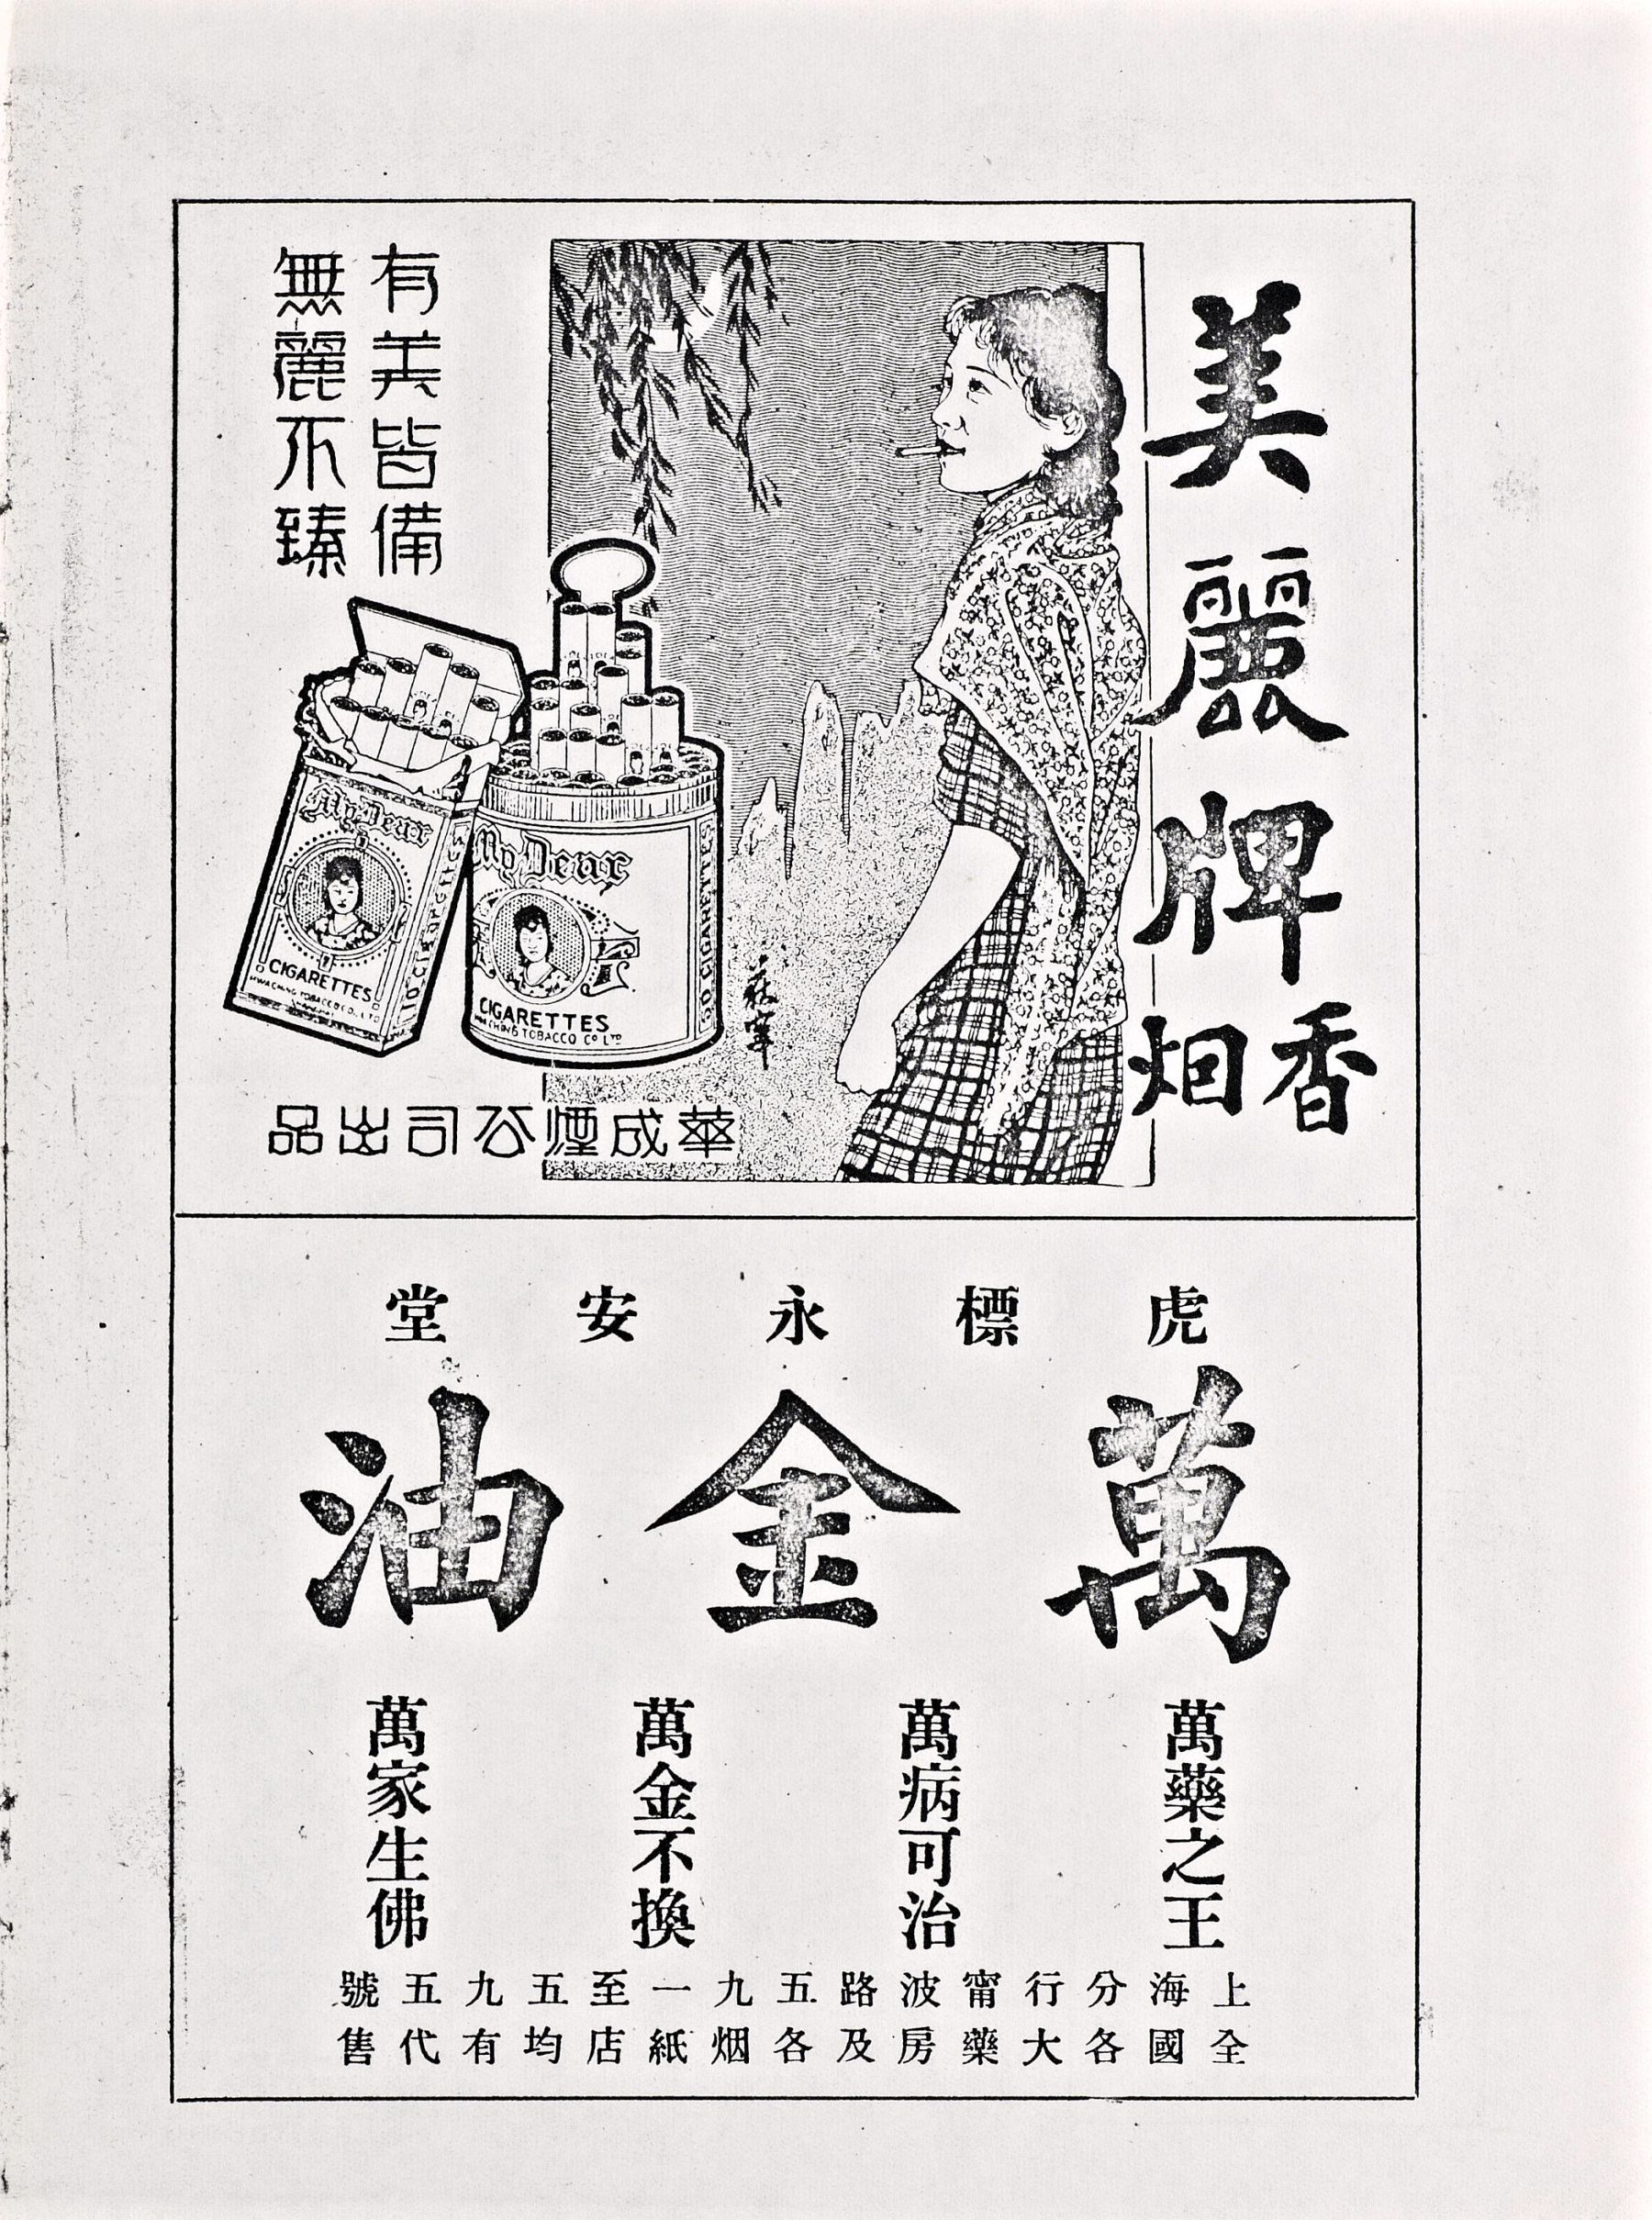 美麗牌
香烟
有美皆備
無麗不臻
My Dear
CIGARETTES
HWA CHING TOBACCO CO., LTD
10 CIGARETTES
My Dear
CIGARETTES
HWA CHING TOBACCO CO LTD
50 CIGARETTES
華成煙公司出品
虎標永安堂
萬金油
萬藥之王
萬病可治
萬金不換
萬家生佛
上海分行甯波路五九一至五九五號
全國各大藥房及各烟紙店均有代售